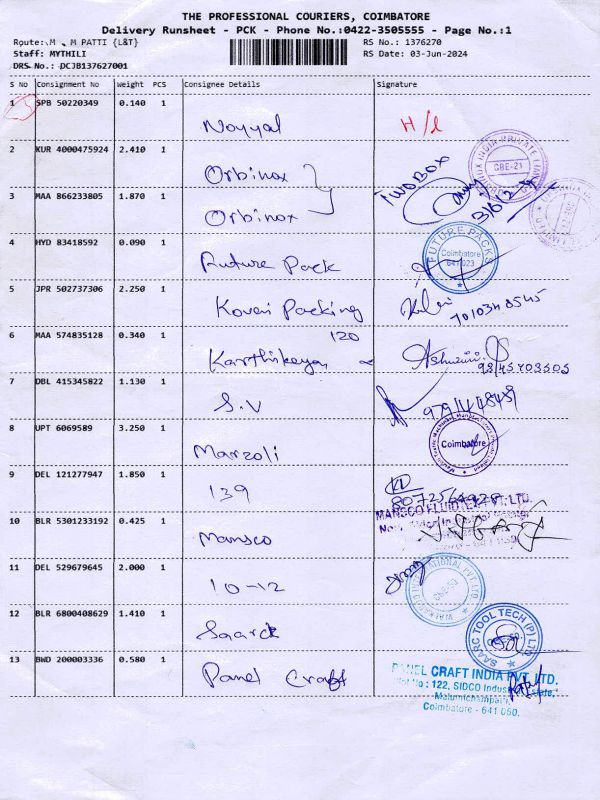 THE PROFESSIONAL COURIERS, COIMBATORE
Delivery Runsheet - PCK - Phone No.:0422-3505555 - Page No.:1
Route: M . M PATTI {L&T} RS No.: 1376270
Staff: MYTHILI RS Date: 03-Jun-2024
DRS No.: DCJB137627001
S No Consignment No Weight PCS Consignee Details Signature
1 SPB 50220349 0.140 1
Noyyal H/l
2 KUR 4000475924 2.410 1
Orbinox TWO BOX
CBE-21
3 MAA 866233805 1.870 1
Orbinox 3/6/24
4 HYD 83418592 0.090 1
Future Pack FUTURE PACKS Coimbatore 641 023
5 JPR 502737306 2.250 1
Kovai Packing 7010348545
6 MAA 574835128 0.340 1 120
Karthikeyan
7 DBL 415345822 1.130 1
S.V
8 UPT 6069589 3.250 1
Marzoli Coimbatore
9 DEL 121277947 1.850 1
139
10 BLR 5301233192 0.425 1 MANSCO FLUIDTEX PVT. LTD.
Mansco
11 DEL 529679645 2.000 1
10-12
12 BLR 6800408629 1.410 1
Saarck SAARC TOOL TECH (P) LTD
13 BWD 200003336 0.580 1
Panel Craft PANEL CRAFT INDIA PVT. LTD.
Plot No : 122, SIDCO Industrial Estate,
Malumichampatti,
Coimbatore - 641 050.